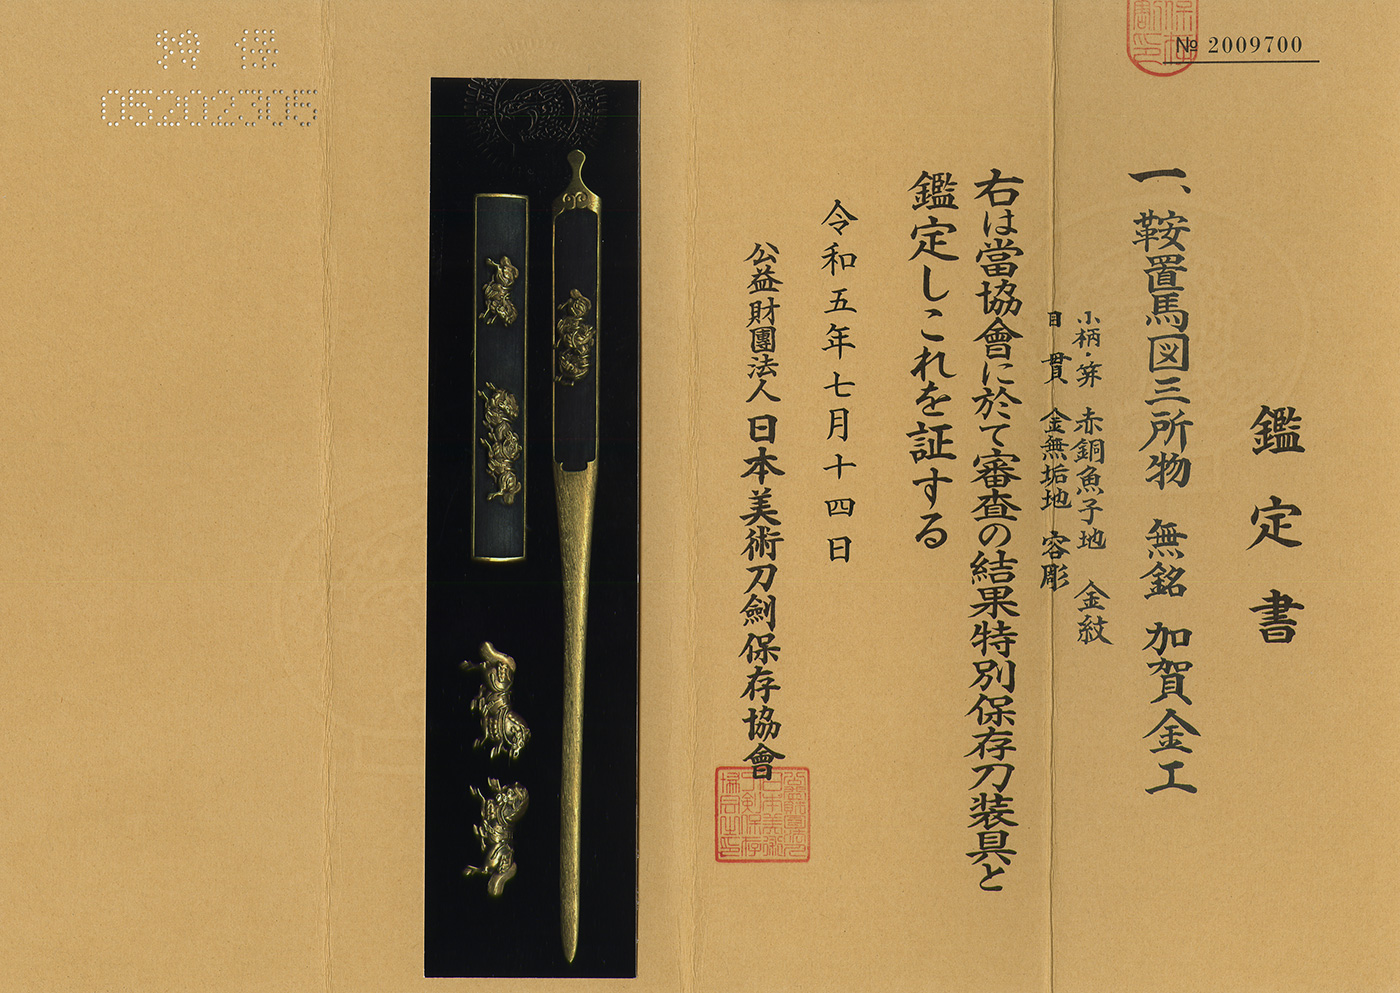 № 2009700
鑑定書
一、鞍置馬図三所物 無銘 加賀金工
小柄・笄 赤銅魚子地 金紋
目貫 金無垢地 容彫
右は當協會に於て審査の結果特別保存刀装具と
鑑定しこれを証する
令和五年七月十四日
公益財團法人 日本美術刀劍保存協會
05202305